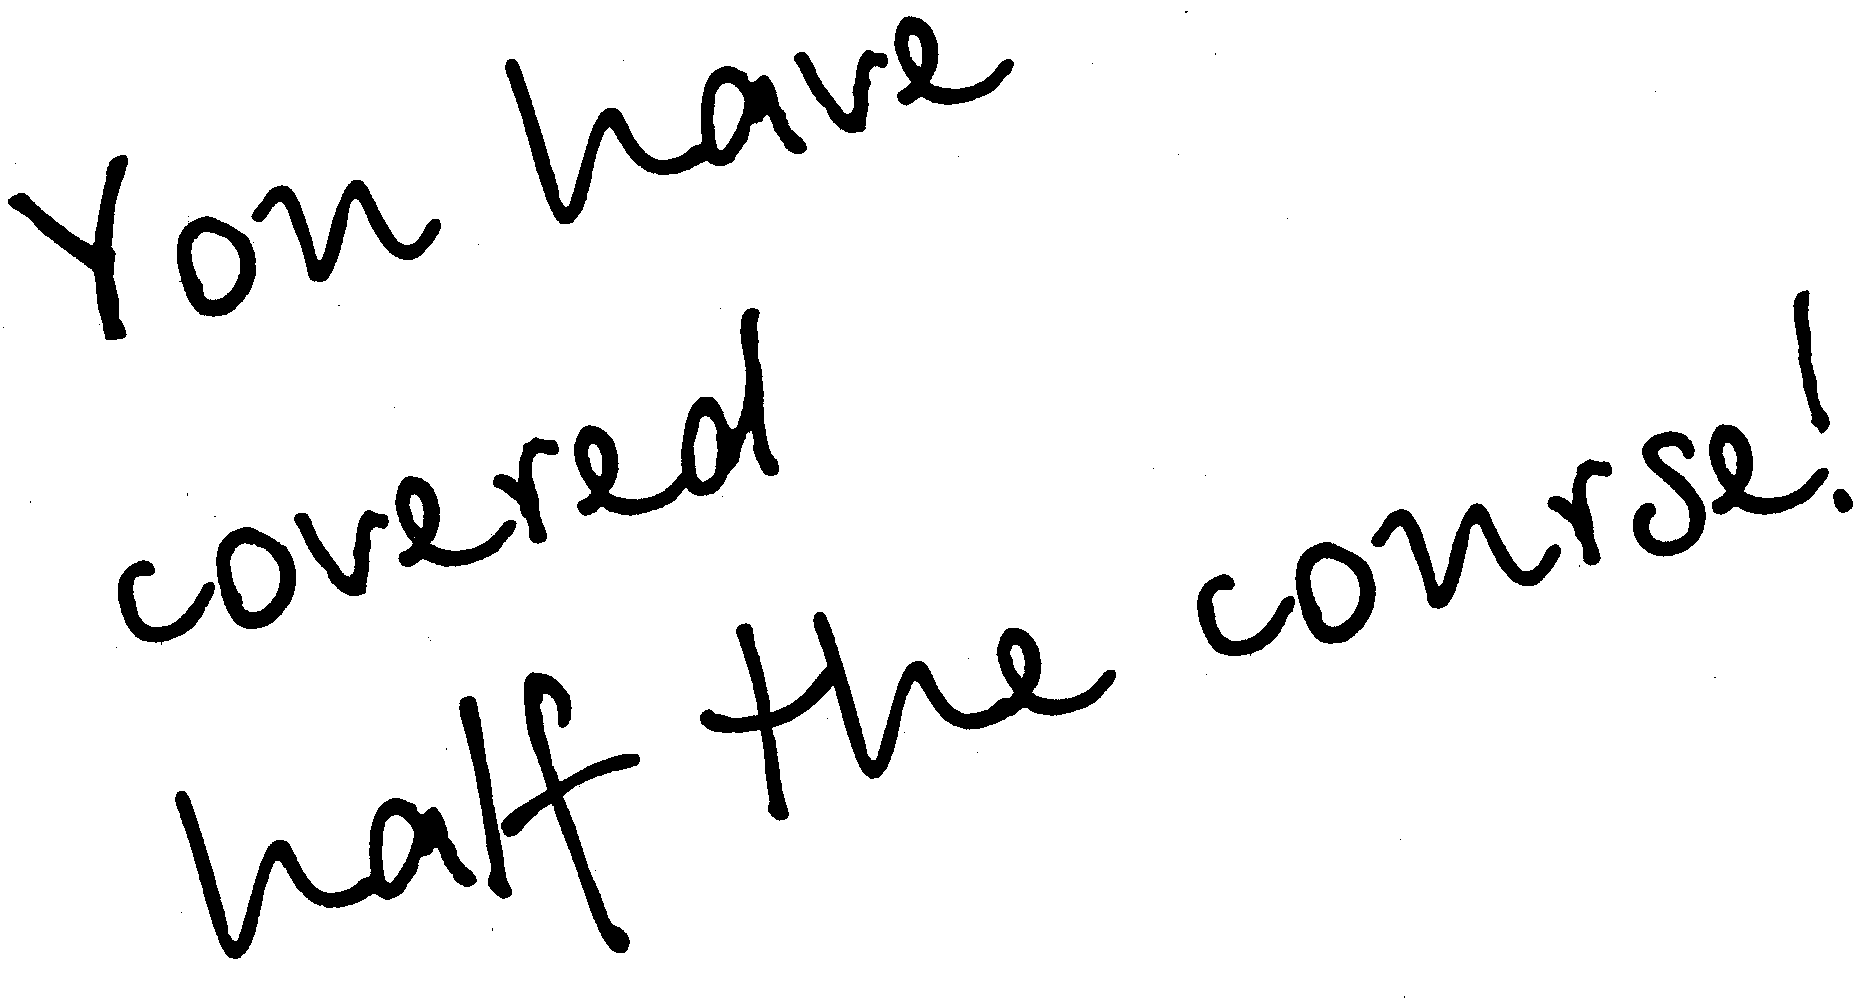 You have
covered
half the course!